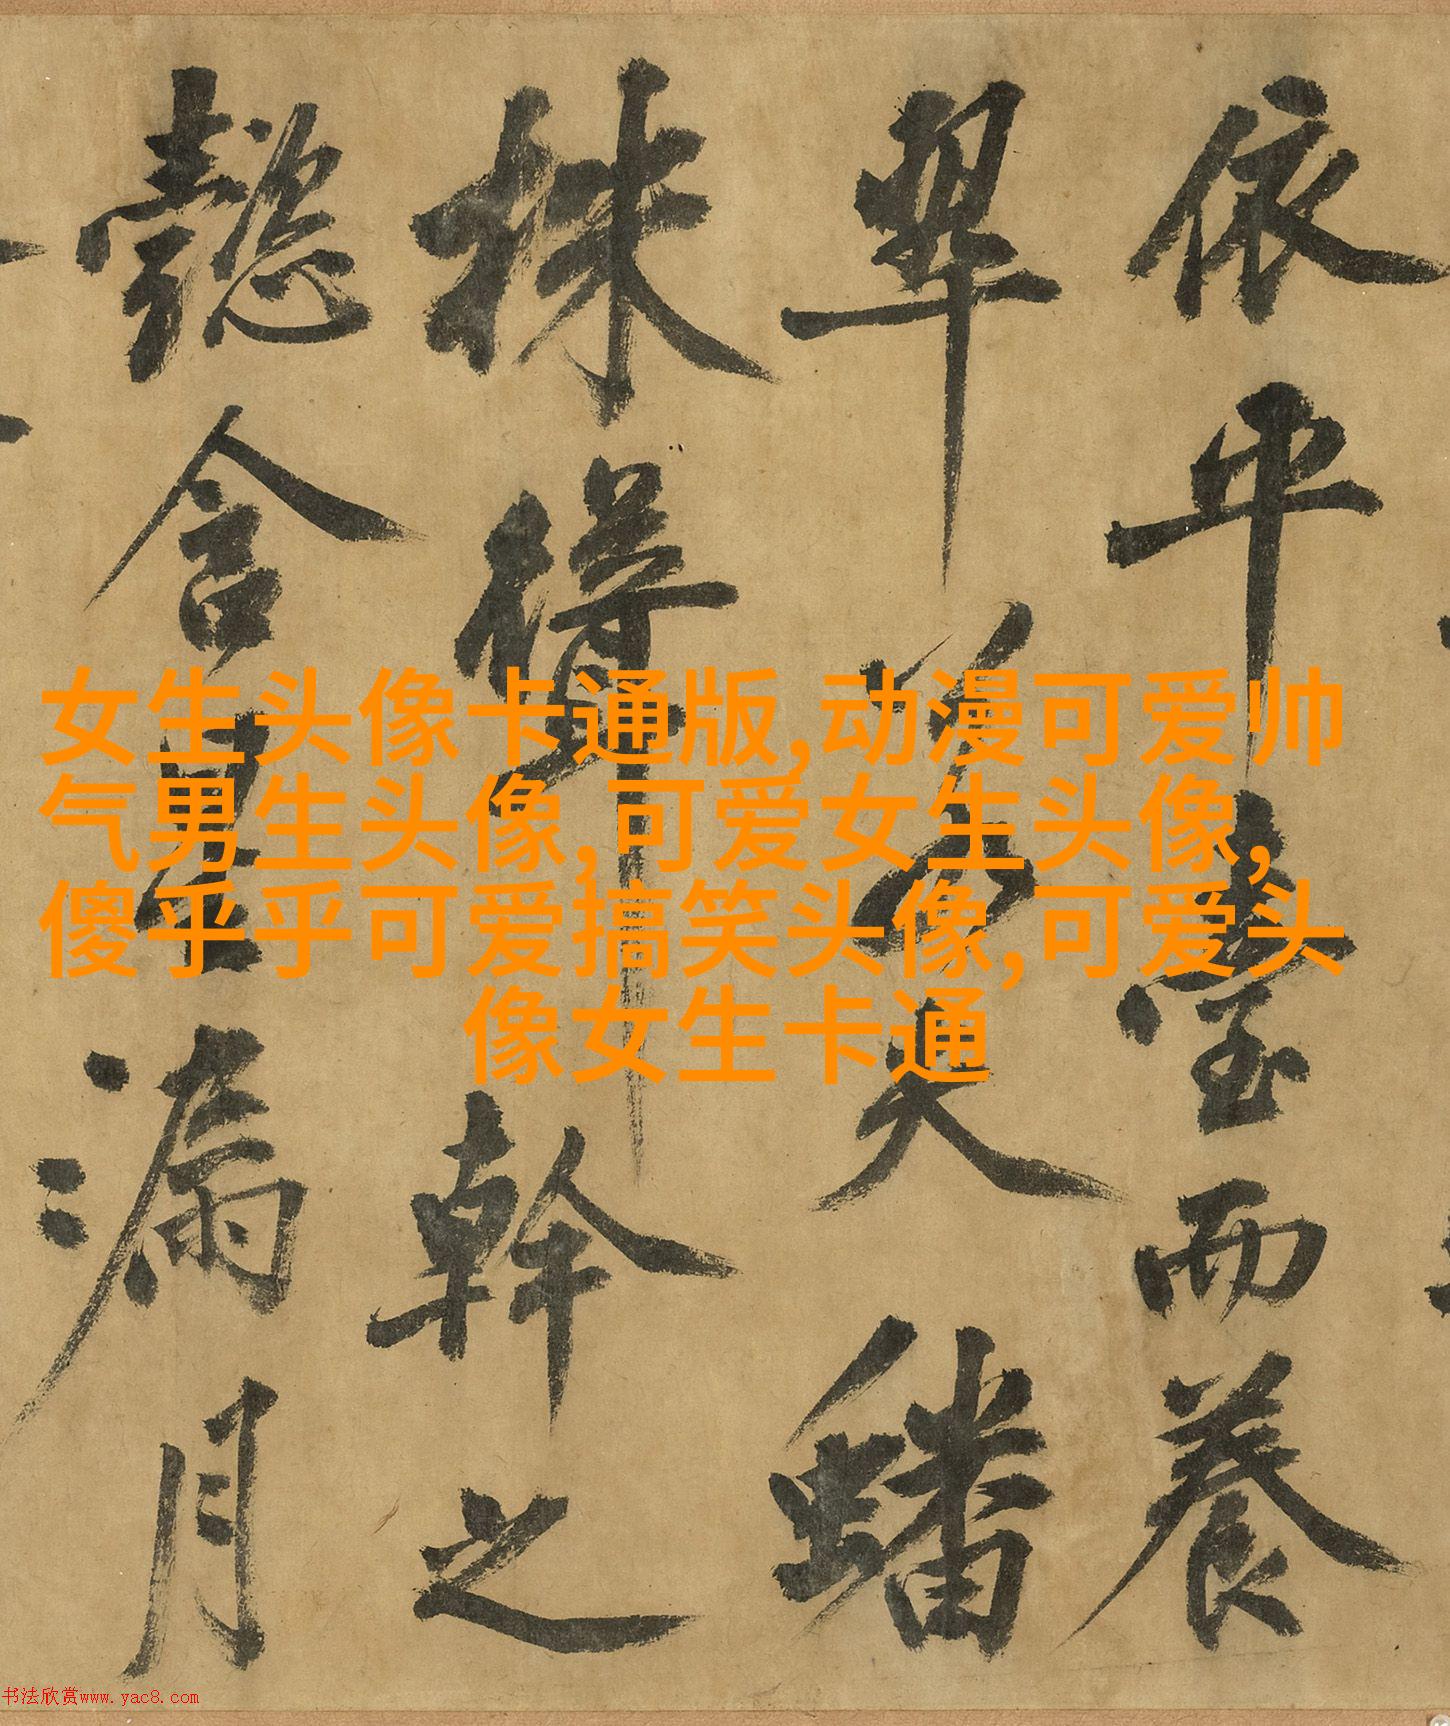 依平臺而養
翠夫蟠
株幹之
懿含星漏月
女生头像卡通版,动漫可爱帅
气男生头像,可爱女生头像,
傻乎乎可爱搞笑头像,可爱头
像女生卡通
书法欣赏www.yac8.com